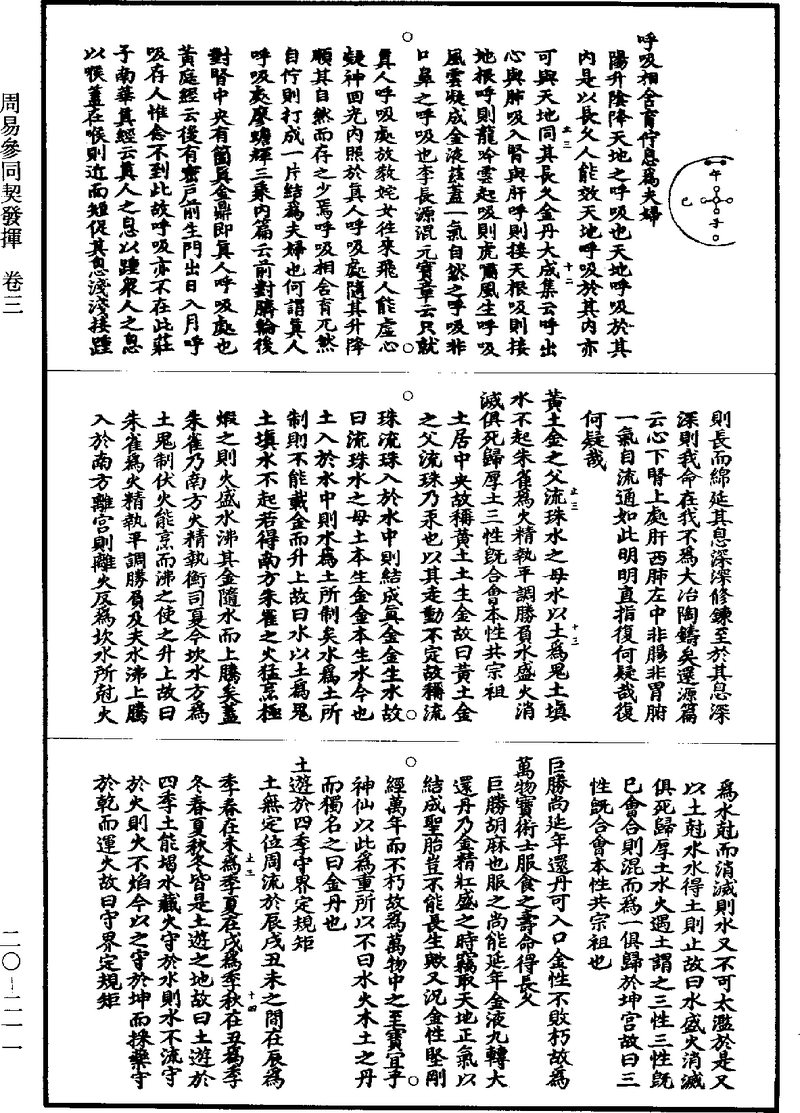 周易參同契發揮 卷三
二〇—二一一
午
巳
子
呼吸相含育佇息爲夫婦
陽升陰降天地之呼吸也天地呼吸於其
內是以長久人能效天地呼吸於其內亦
上三 十二
可與天地同其長久金丹大成集云呼出
心與肺吸入腎與肝呼則接天根吸則接
地根呼則龍吟雲起吸則虎嘯風生呼吸
風雲凝成金液蓋一氣自然之呼吸非
口鼻之呼吸也李長源混元寶章云只就
真人呼吸處放教姹女往來飛人能虛心
凝神回光內照於真人呼吸處隨其升降
順其自然而存之少焉呼吸相含育兀然
自佇則打成一片結爲夫婦也何謂真人
呼吸處廖蟾輝三乘內篇云前對臍輪後
對腎中央有箇真金鼎即真人呼吸處也
黃庭經云後有密戶前生門出日入月呼
吸存人惟念不到此故呼吸亦不在此莊
子南華真經云真人之息以踵衆人之息
以喉蓋在喉則近而短促其息淺淺接踵
則長而綿延其息深深修鍊至於其息深
深則我命在我不爲大冶陶鑄矣還源篇
云心下腎上處肝西肺左中非腸非胃腑
一氣自流通如此明明直指復何疑哉復
何疑哉
上三 十三
黃土金之父流珠水之母水以土爲鬼土填
水不起朱雀爲火精執平調勝負水盛火消
滅俱死歸厚土三性既合會本性共宗祖
土居中央故稱黃土土生金故曰黃土金
之父流珠乃汞也以其走動不定故稱流
珠流珠入於水中則結成真金金生水故
曰流珠水之母土本生金金本生水今也
土入於水中則水爲土所制矣水爲土所
制則不能載金而升上故曰水以土爲鬼
土填水不起若得南方朱雀之火猛烹極
煅之則火盛水沸其金隨水而上騰矣蓋
朱雀乃南方火精執衡司夏今坎水方爲
土鬼制伏火能烹而沸之使之升上故曰
朱雀爲火精執平調勝負及夫水沸上騰
入於南方離宮則離火反爲坎水所尅火
爲水尅而消滅則水又不可太濫於是又
以土尅水水得土則止故曰水盛火消滅
俱死歸厚土水火遇土謂之三性三性既
已會合則混而爲一俱歸於坤宮故曰三
性既合會本性共宗祖也
巨勝尚延年還丹可入口金性不敗朽故爲
萬物寶術士服食之壽命得長久
巨勝胡麻也服之尚能延年金液九轉大
還丹乃金精壯盛之時竊取天地正氣以
結成聖胎豈不能長生歟又況金性堅剛
經萬年而不朽故爲萬物中之至寶宜乎
神仙以此爲重所以不曰水火木土之丹
而獨名之曰金丹也
土遊於四季守界定規矩
土無定位周流於辰戌丑未之間在辰爲
上三 十四
季春在未爲季夏在戌爲季秋在丑爲季
冬春夏秋冬皆是土遊之地故曰土遊於
四季土能塌水藏火守於水則水不流守
於火則火不焰今以之守於坤而採藥守
於乾而運火故曰守界定規矩